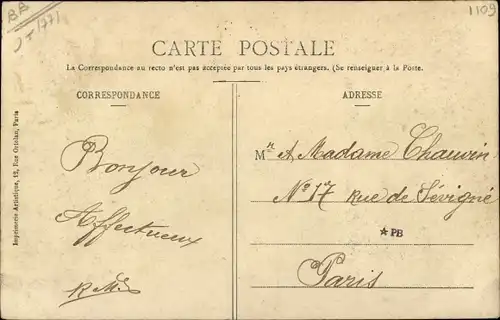 BB
1109
CARTE POSTALE
La Correspondance au recto n'est pas acceptée par tous les pays étrangers. (Se renseigner à la Poste.
CORRESPONDANCE
ADRESSE
Bonjour
Affectueux
Mn A Madame Chauvin
No 17 rue de Sévigné
★PB
Paris
Imprimerie Artistique, 12, Rue Ortolan, Paris